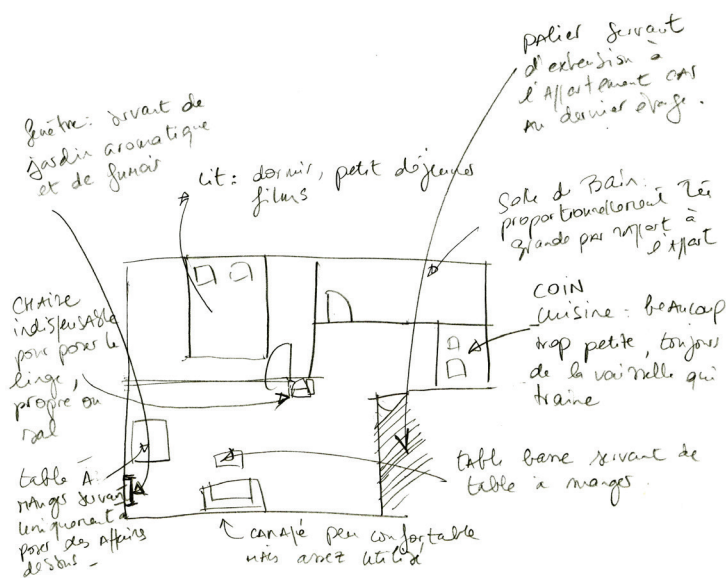 palier servant
d'extension à
l'Appartement CAR
AU dernier étage.
fenêtre: servant de
jardin aromatique
et de fumoir
lit: dormir, petit déjeuner
films
Salle de Bain:
proportionnellement très
grande par rapport à
l'Appart
COIN
cuisine: beAucoup
trop petite, toujours
de la vaisselle qui
traine
CHAISE
indispensable
pour poser le
linge,
propre ou
sal
table A
manger servant
uniquement à
poser des Affaires
dessus -
tAble basse servant de
table a manger
CANAPé peu confortable
mais assez utilisé